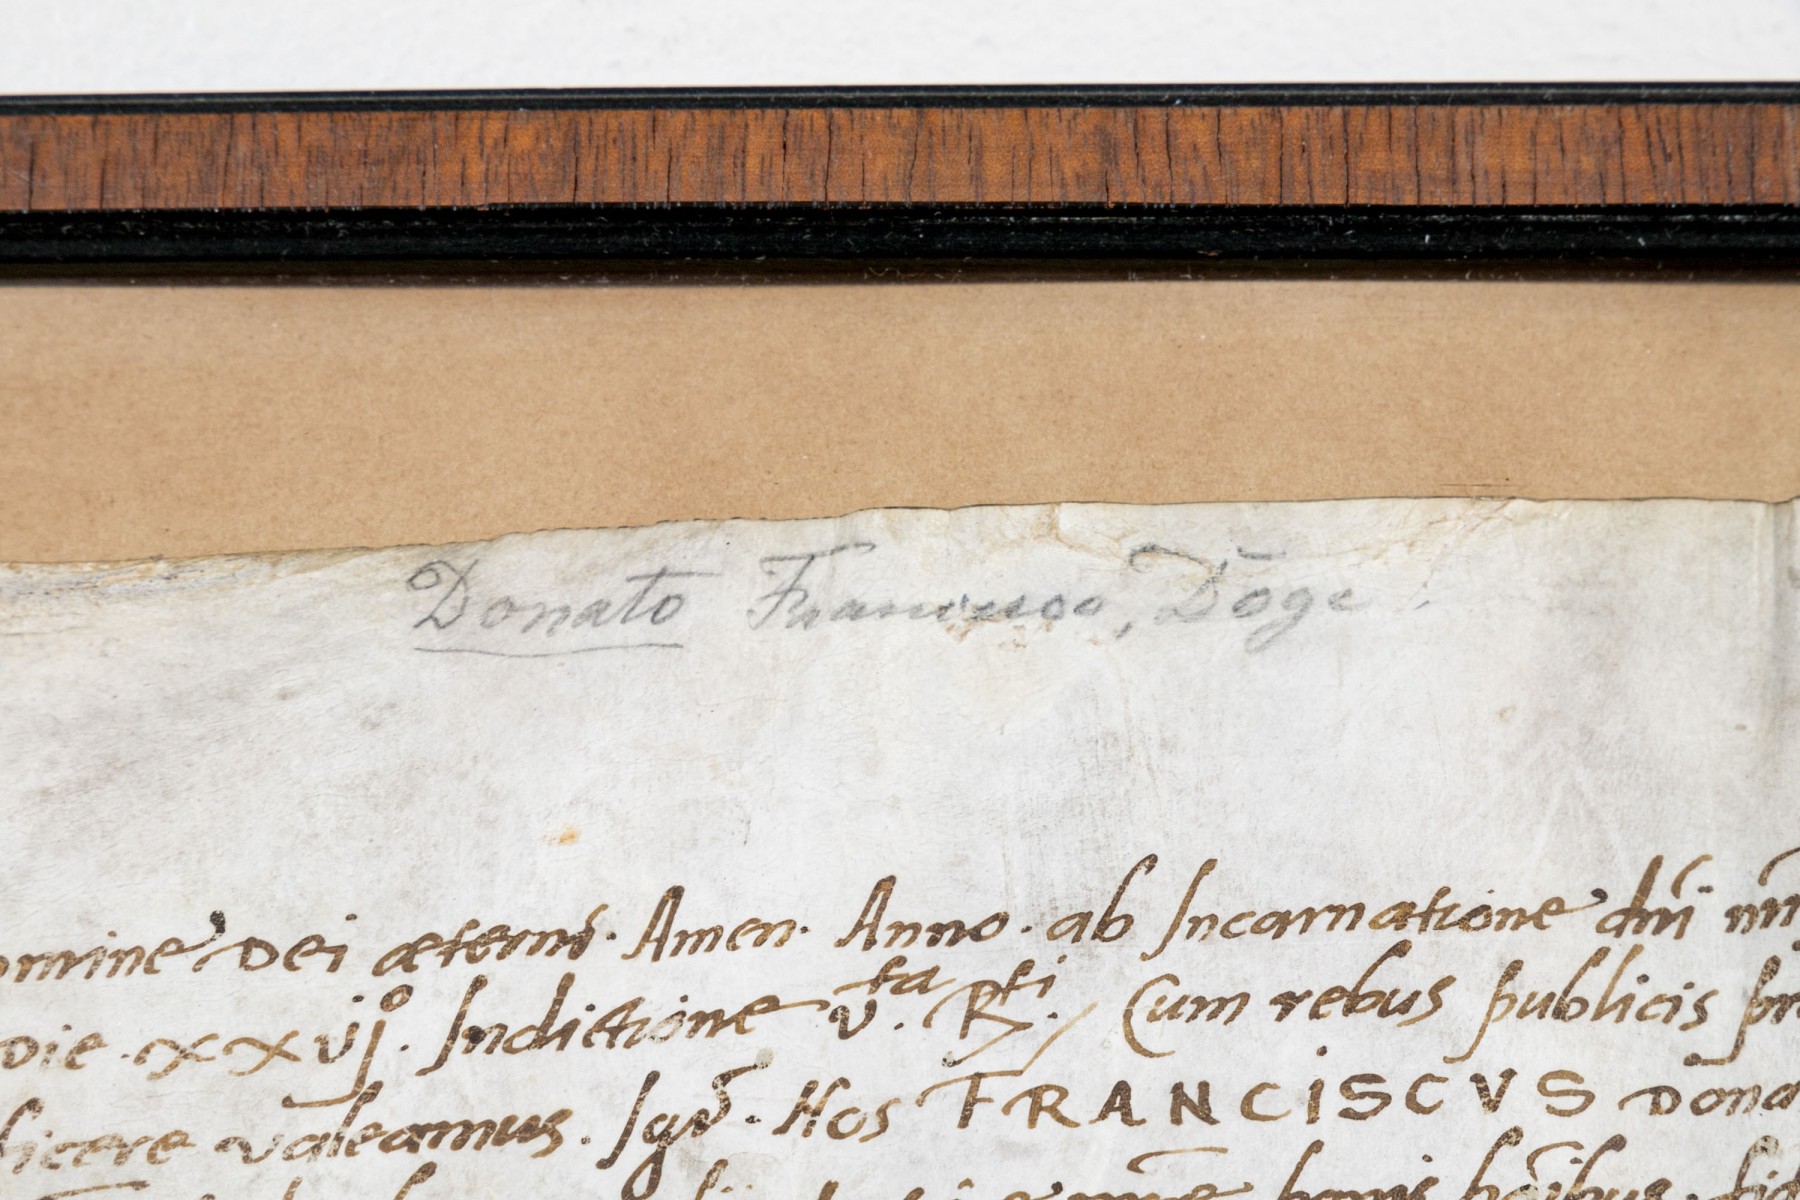 Donato Francesco, Doge
omine Dei æterni. Amen. Anno. ab Incarnatione dñi
Die. xxvijº. Indictione v.ta R.ti. Cum rebus publicis
ficere valeamus. Igr̄. Nos FRANCISCVS Dona